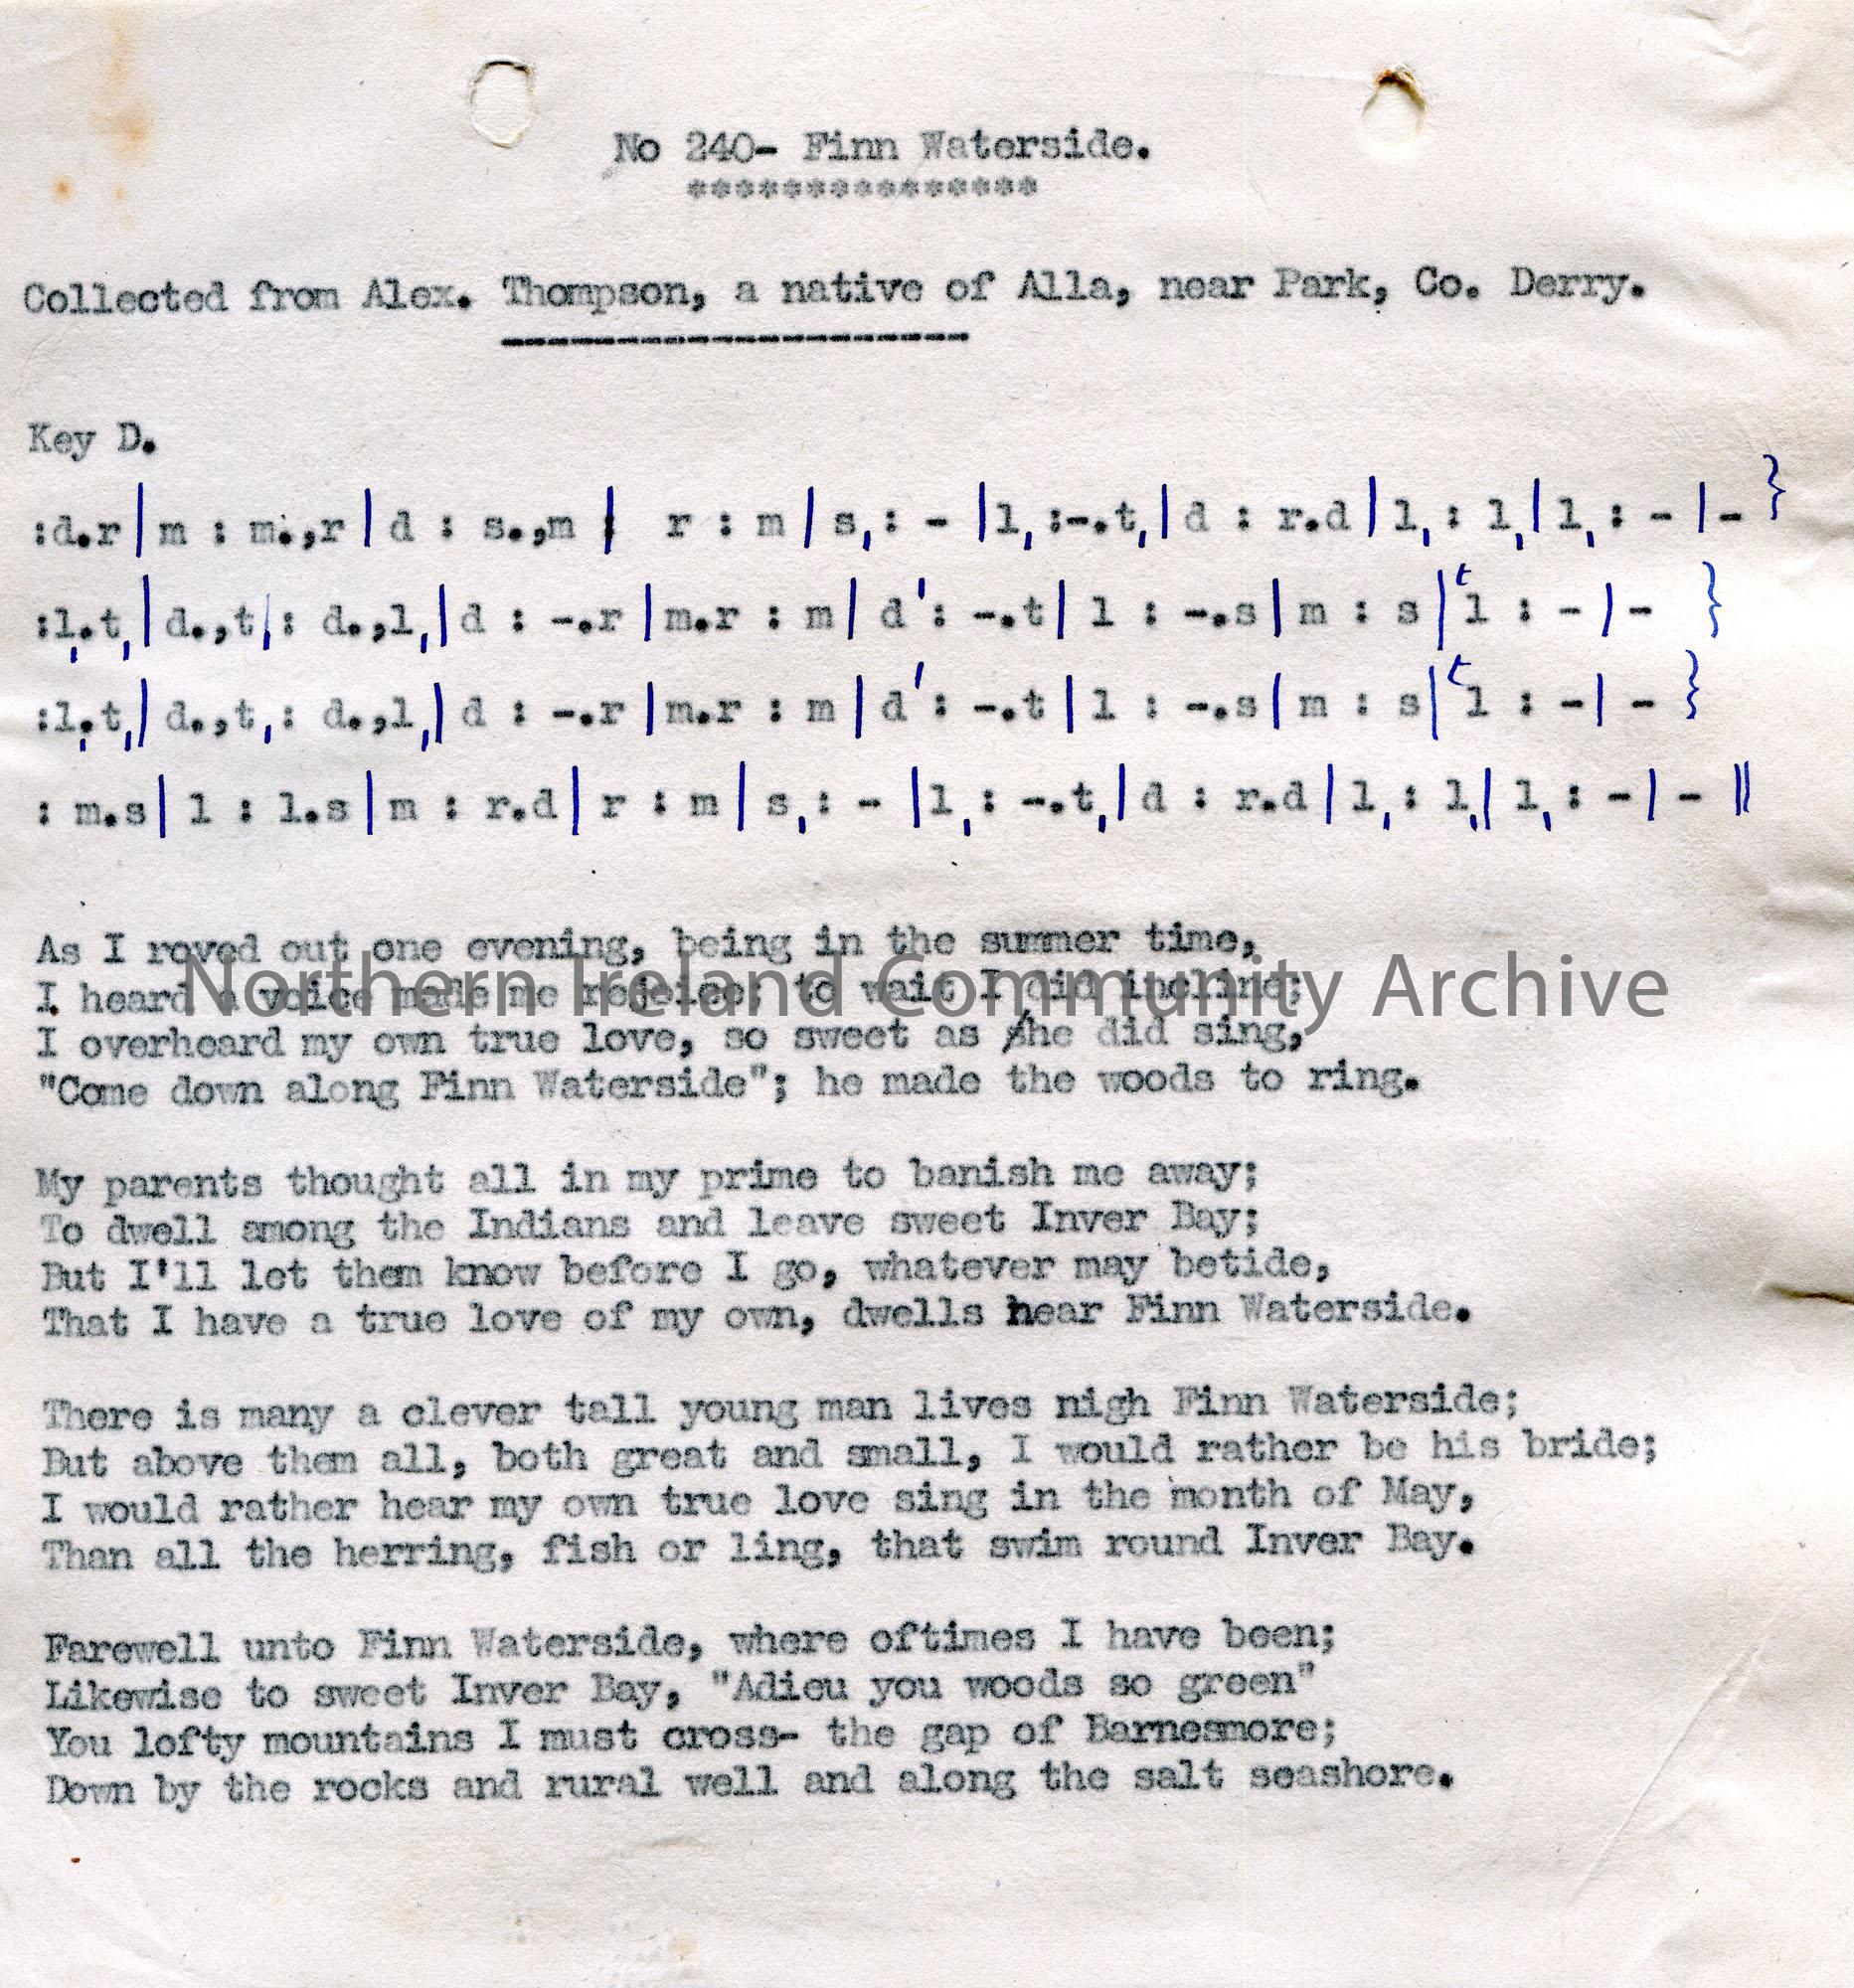 No 240- Finn Waterside.
***************
Collected from Alex. Thompson, a native of Alla, near Park, Co. Derry.
--------------------
Key D.
:d.r | m : m.,r | d : s.,m | r : m | s, : - | l, :-.t, | d : r.d | l, : l, | l, : - | - }
:l,.t, | d.,t, : d.,l, | d : -.r | m.r : m | d' : -.t | l : -.s | m : s | t l : - | - }
:l,.t, | d.,t, : d.,l, | d : -.r | m.r : m | d' : -.t | l : -.s | m : s | t l : - | - }
: m.s | l : l.s | m : r.d | r : m | s, : - | l, : -.t, | d : r.d | l, : l, | l, : - | - ||
As I roved out one evening, being in the summer time,
I heard a voice made me rejoice; to wait I did incline;
I overheard my own true love, so sweet as he did sing,
"Come down along Finn Waterside"; he made the woods to ring.
My parents thought all in my prime to banish me away;
To dwell among the Indians and leave sweet Inver Bay;
But I'll let them know before I go, whatever may betide,
That I have a true love of my own, dwells near Finn Waterside.
There is many a clever tall young man lives nigh Finn Waterside;
But above them all, both great and small, I would rather be his bride;
I would rather hear my own true love sing in the month of May,
Than all the herring, fish or ling, that swim round Inver Bay.
Farewell unto Finn Waterside, where oftimes I have been;
Likewise to sweet Inver Bay, "Adieu you woods so green"
You lofty mountains I must cross- the gap of Barnesmore;
Down by the rocks and rural well and along the salt seashore.
Northern Ireland Community Archive